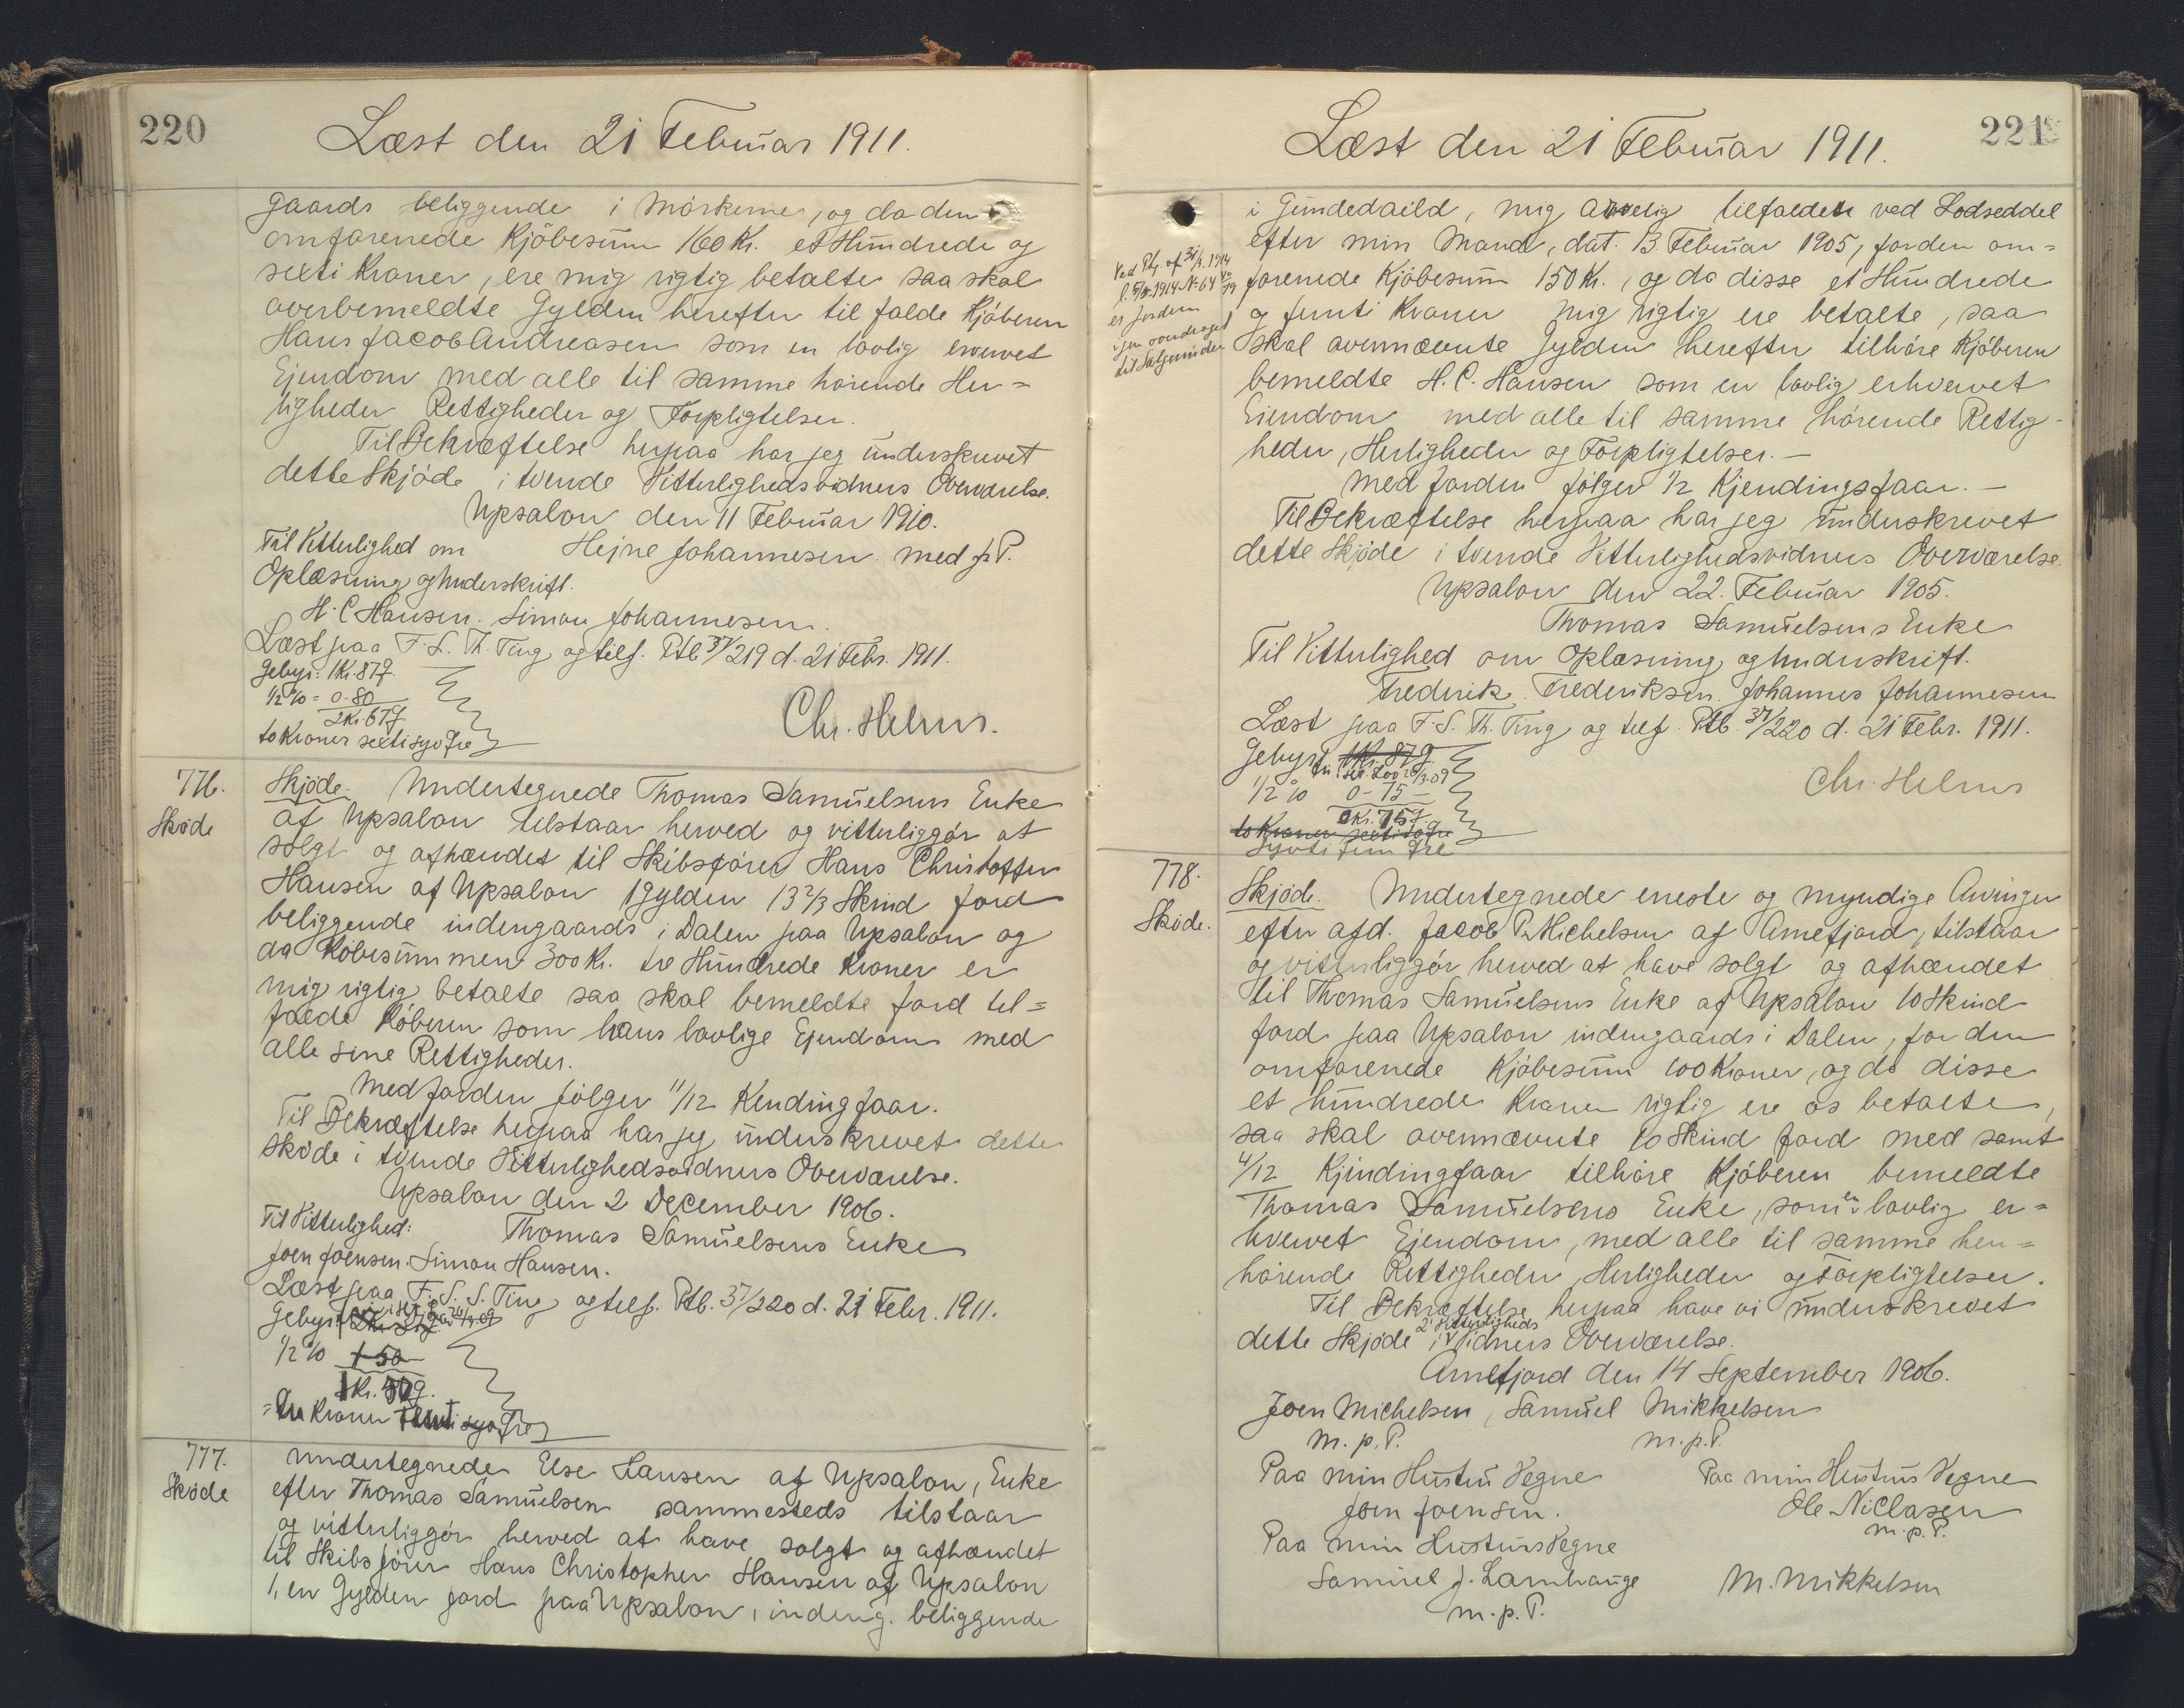 220
Læst den 21 Februar 1911.
gaards beliggende i Mörkerne, og da den
omforenede Kjöbesum 160 Kr. et Hundrede og
sexti Kroner, ere mig rigtig betalte saa skal
ovenbemeldte Gylden herefter til falde Kjöberen
Hans Jacob Andreasen som en lovlig erervet
Ejendom med alle til samme hörende Her=
ligheder Rettigheder og Forpligtelser.
Til Bekræftelse herpaa har jeg underskrevet
dette Skjöde i tvende Vitterlighedsvidners Overværelse.
Upsalon den 11 Februar 1910.
Til Vitterlighed om Hejne Johannesen. med f. P.
Oplæsning og Underskrift.
H. C Hansen. Simon Johannesen.
Læst paa F. S. Th. Ting og tilf. Ptb 37/219 d. 21 Febr. 1911.
Gebyr: 1 Kr. 87 F.
1/2 % = 0 - 80
2 Kr. 67 F.
to Kroner sexti syv Øre
Chr. Helms.
776.
Sköde
Skjöde. Undertegnede Thomas Samuelsens Enke
af Upsalon tilstaar herved og vitterliggör at
solgt og afhændet til Skibsförer Hans Christoffer
Hansen af Upsalon 1 Gylden 13 2/3 Skind Jord
beliggende indengaards i Dalen paa Upsalon og
da Köbesummen 300 Kr. tre Hundrede Kroner er
mig rigtig betalte saa skal bemeldte Jord til=
falde Köberen som hans lovlige Ejendom med
alle sine Rettigheder.
Med Jorden fölger 11/12 Kendingfaar.
Til Bekræftelse herpaa har jeg underskrevet dette
sköde i tvende Vitterlighedsvidners Overværelse.
Upsalon den 2 December 1906.
Til Vitterlighed: Thomas Samuelsens Enke
Joen Joensen. Simon Hansen.
Læst paa F. S. S. Ting og tilf. Ptb. 37/220 d. 21 Febr. 1911.
Gebyr: fri i ser. Lov 26/3.09
1/2 % 1 50
1 Kr. 50 F.
= Kroner femti Øre
777.
Sköde
Undertegnede Else Hansen af Upsalon, Enke
efter Thomas Samuelsen sammesteds tilstaar
og vitterliggör herved at have solgt og afhændet
til Skibsförer Hans Christopher Hansen af Upsalon
1, en Gylden Jord paa Upsalon, indeng. beliggende
221
Læst den 21 Februar 1911.
i Gundedaild, mig arvelig tilfalden ved Lodseddel
efter min Mand, dat. 13 Februar 1905, for den om=
forenede Kjöbesum 150 Kr., og da disse et Hundrede
og femti Kroner mig rigtig ere betalte, saa
skal ovennævnte Gylden herefter tilhöre Kjöberen
bemeldte H. C. Hansen som en lovlig erhvervet
Eiendom med alle til samme hörende Rettig-
heder, Herligheder og Forpligtelser. —
Ved Ptg. af 31/3. 1914
l. 5/5. 1914 No 64
er Jorden
igen overdraget
til Sælgerinden
Med Jorden fölger 1/2 Kjendingsfaar. —
Til Bekræftelse herpaa har jeg underskrevet
dette Skjöde i tvende Vitterlighedsvidners Overværelse.
Upsalon den 22. Februar 1905.
Thomas Samuelsens Enke
Til Vitterlighed om Oplæsning og Underskrift.
Frederik Frederiksen. Johannes Johannesen
Læst paa F. S. Th. Ting og tilf. Ptb. 37/220 d. 21 Febr. 1911.
Gebyr: 1 Kr. 87 F.
fri i ser. Lov 26/3.09
1/2 % 0 - 75
0 Kr. 75 F.
to Kroner sexti to Øre
Syvti fem Øre
Chr. Helms
778.
Sköde.
Skjöde. Undertegnede eneste og myndige Arvinger
efter afd. Jacob P. Michelsen af Arnefjord, tilstaar
og vitterliggör herved at have solgt og afhændet
til Thomas Samuelsens Enke af Upsalon 10 Skind
Jord paa Upsalon indengaards i Dalen, for den
omforenede Kjöbesum 100 Kroner, og da disse
et hundrede Kroner rigtig ere os betalte,
saa skal ovennævnte 10 Skind Jord med samt
4/12 Kjendingfaar tilhöre Kjöberen bemeldte
Thomas Samuelsens Enke, som en lovlig er=
hvervet Ejendom, med alle til samme hen=
hörende Rettigheder, Herligheder og Forpligtelser.
Til Bekræftelse herpaa have vi underskrevet
dette Skjöde i 2 Vitterligheds Vidners Overværelse.
Arnefjord den 14 September 1906.
Joen Michelsen, Samuel Mikkelsen
m. p. P. m. p. P.
Paa min Hustru Vegne Paa min Hustrus Vegne
Joen Joensen. Ole Niclasen
m. p. P.
Paa min Hustrus Vegne
Samuel J. Lamhauge M. Mikkelsen
m. p. P.